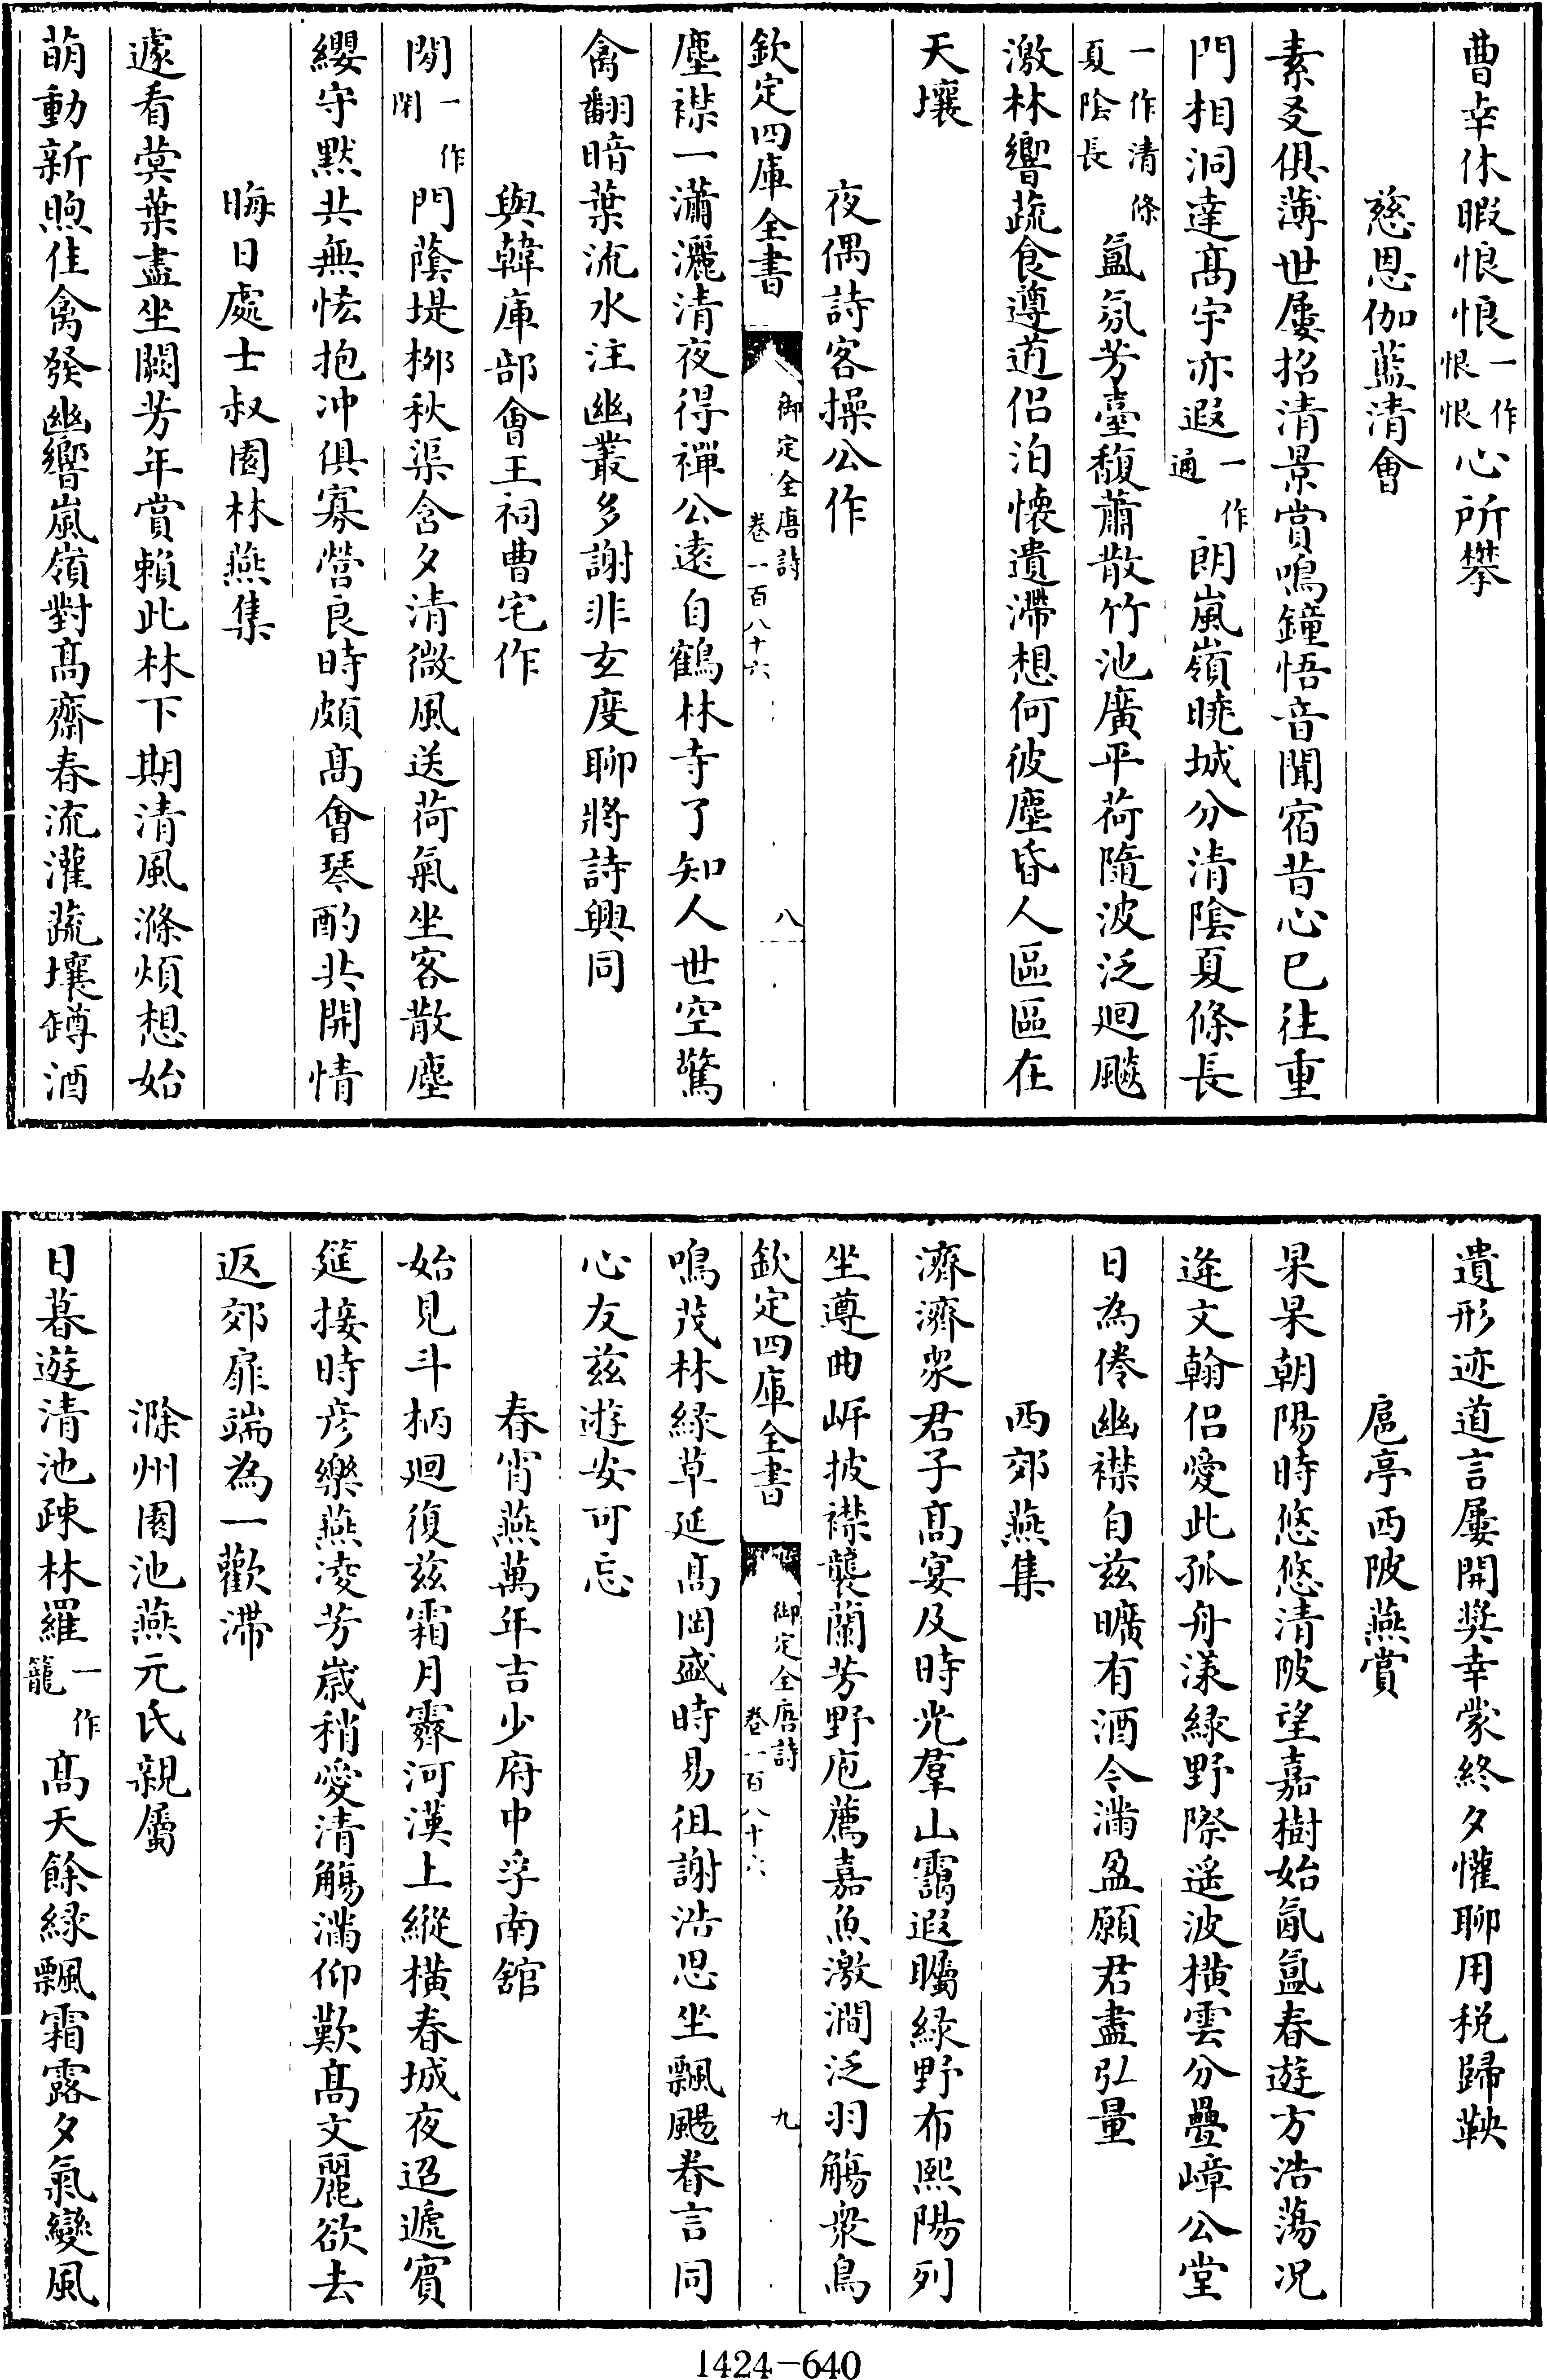 曹幸休暇悢悢一作恨恨心所攀
慈恩伽藍清會
素友俱薄世屢招清景賞鳴鐘悟音聞宿昔心已往重
門相洞達髙宇亦遐一作通朗嵐嶺曉城分清隂夏條長
一作清條夏隂長氲氛芳臺馥蕭散竹池廣平荷隨波泛廻飈
激林響蔬食遵道侶泊懐遺滯想何彼塵昏人區區在
天壤
夜偶詩客操公作
欽定四庫全書 御定全唐詩 卷一百八十六 八
塵襟一瀟灑清夜得禪公遠自鶴林寺了知人世空驚
禽翻暗葉流水注幽叢多謝非玄度聊將詩興同
與韓庫部會王祠曹宅作
閒一作閉門蔭堤栁秋渠含夕清微風送荷氣坐客散塵
纓守默共無恡抱冲俱寡營良時頗髙會琴酌共開情
晦日處士叔園林燕集
遽看蓂葉盡坐闕芳年賞賴此林下期清風滌煩想始
萌動新煦佳禽發幽響嵐嶺對髙齋春流灌蔬壤罇酒
遺形迹道言屢開奬幸蒙終夕懽聊用税歸鞅
扈亭西陂燕賞
杲杲朝陽時悠悠清陂望嘉樹始氤氲春遊方浩蕩况
逄文翰侣愛此孤舟漾緑野際遥波横雲分疊嶂公堂
日為倦幽襟自兹曠有酒今滿盈願君盡弘量
西郊燕集
濟濟衆君子髙宴及時光羣山靄遐矚緑野布熙陽列
坐遵曲岍披襟襲蘭芳野庖薦嘉魚激澗泛羽觴衆鳥
欽定四庫全書 御定全唐詩 卷一百八十六 九
鳴茂林緑草延髙岡盛時易徂謝浩思坐飄颺眷言同
心友兹遊安可忘
春宵燕萬年吉少府中孚南舘
始見斗柄廻復兹霜月霽河漢上縱橫春城夜迢遞賓
筵接時彦樂燕凌芳歳稍愛清觴滿仰歎髙文麗欲去
返郊扉端為一歡滯
滁州園池燕元氏親屬
日暮遊清池疎林羅一作籠髙天餘緑飄霜露夕氣變風
1424－640